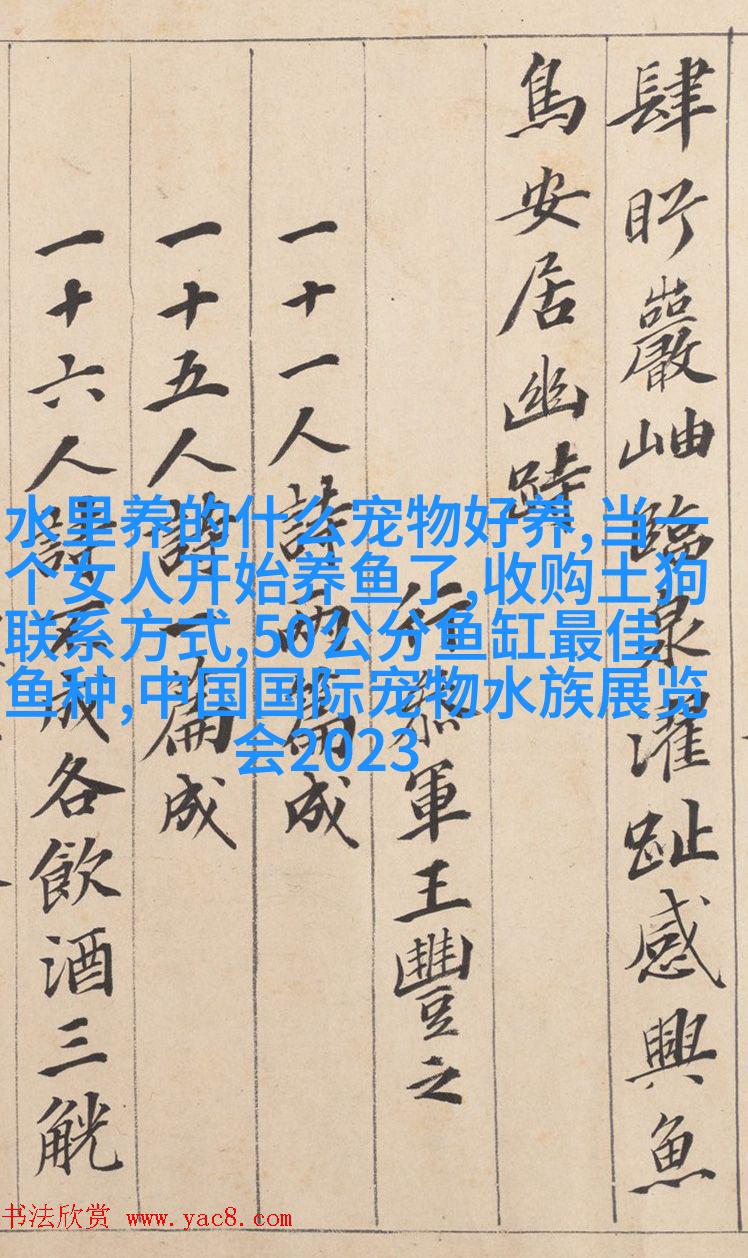 肆眄巖岫臨泉濯趾感興魚
鳥安居幽跱
行參軍王豐之
一十一人詩兩篇成
一十五人詩一篇成
一十六人詩不成各飲酒三觥
水里养的什么宠物好养,当一
个女人开始养鱼了,收购土狗
联系方式,50公分鱼缸最佳
鱼种,中国国际宠物水族展览
会2023
书法欣赏 www.yac8.com